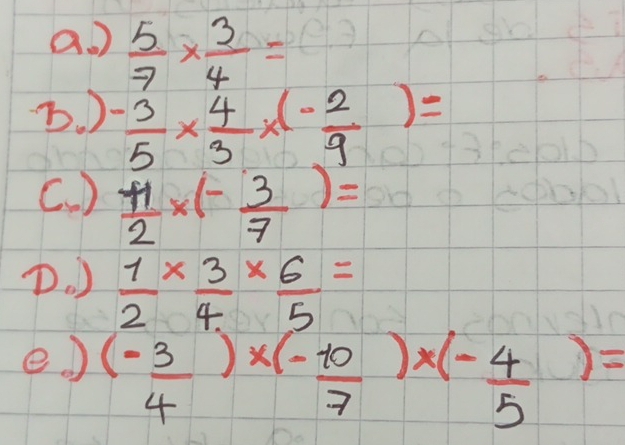 a.) 5/7 × 3/4 =
B.) - 3/5 × 4/3 × (- 2/9) =
C.) 11/2 × (- 3/7) =
D.) 1/2 × 3/4 × 6/5 =
e.) (- 3/4) × (- 10/7) × (- 4/5) =